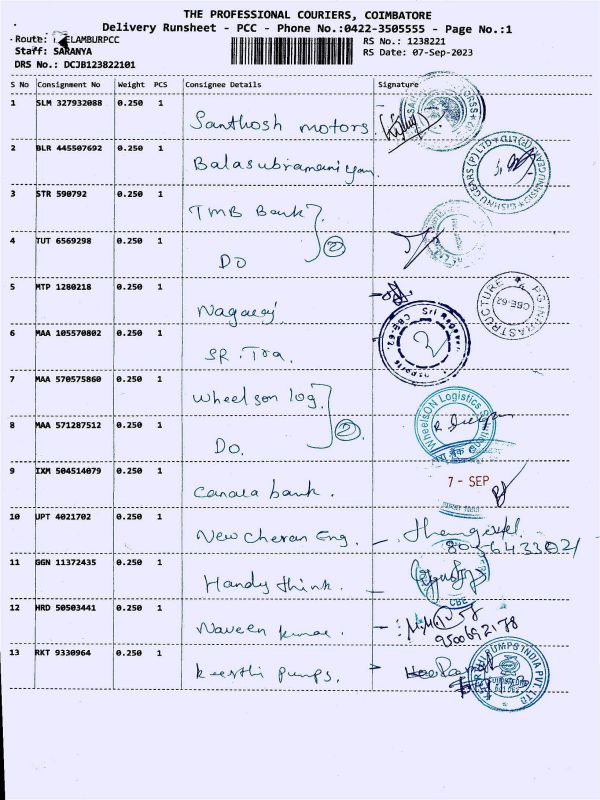 THE PROFESSIONAL COURIERS, COIMBATORE
Delivery Runsheet - PCC - Phone No.:0422-3505555 - Page No.:1
Route: ELAMBURPCC
RS No.: 1238221
Staff: SARANYA
RS Date: 07-Sep-2023
DRS No.: DCJB123822101
S No Consignment No Weight PCS Consignee Details Signature
1 SLM 327932088 0.250 1 Santhosh motors.
2 BLR 445507692 0.250 1 Balasubramaniyan
3 STR 590792 0.250 1 TMB Bank
4 TUT 6569298 0.250 1 Do
2
5 MTP 1280218 0.250 1 Nagaraj.
6 MAA 105570802 0.250 1 SR. Tra.
7 MAA 570575860 0.250 1 Wheelson log.
8 MAA 571287512 0.250 1 Do.
2
WheelsON Logistics Solutions
9 IXM 504514079 0.250 1 Canara bank.
7 - SEP
10 UPT 4021702 0.250 1 New Cheran Eng.
11 GGN 11372435 0.250 1 Handy think.
CBE
12 HRD 50503441 0.250 1 Naveen kumar.
13 RKT 9330964 0.250 1 keerthi pumps.